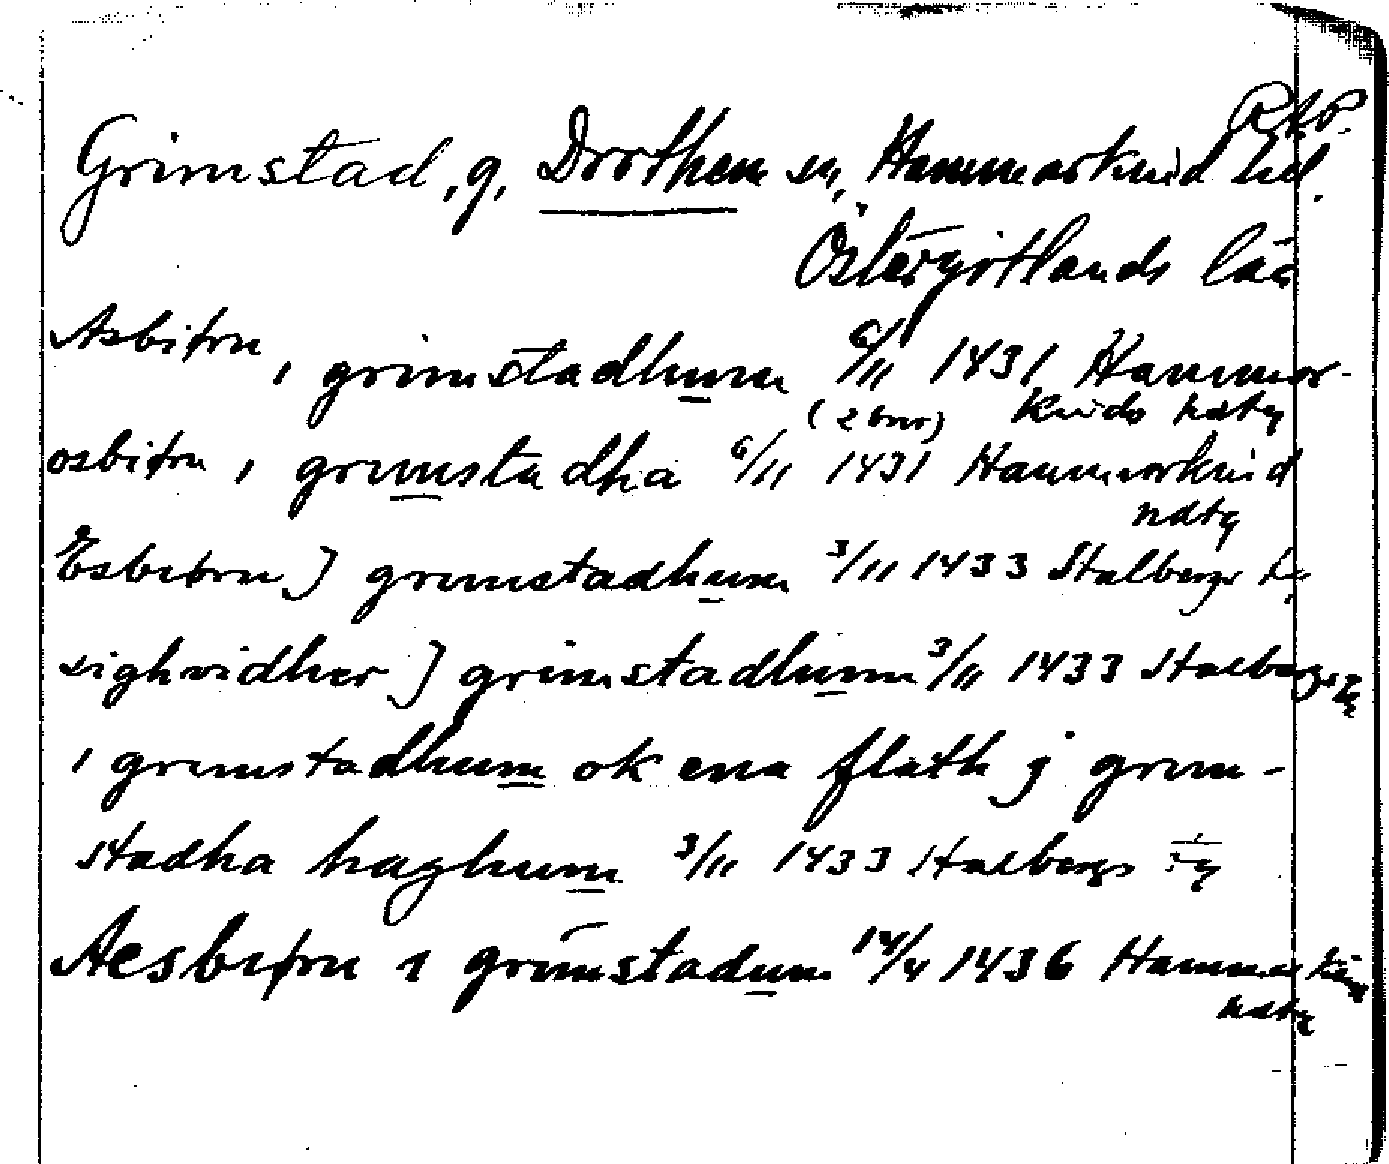 RAP.
Grimstad, g, Drothem sn, Hammarkind hd.
Östergötlands län
Asbiørn i grimstadhum 6/11 1431 Hammar-
(2 brev) kinds hdtg
osbiørn i grimstadha 6/11 1431 Hammarkind
hdtg
Esbiørn j grimstadhum 3/11 1433 Stalbergs tg
sighvidher j grimstadhum 3/11 1433 Stalbergs tg
i grimstadhum ok ena flæth j grim-
stadha haghum 3/11 1433 Stalbergs tg
Aesbiørn i grimstadum 14/4 1436 Hammarkind
hdtg